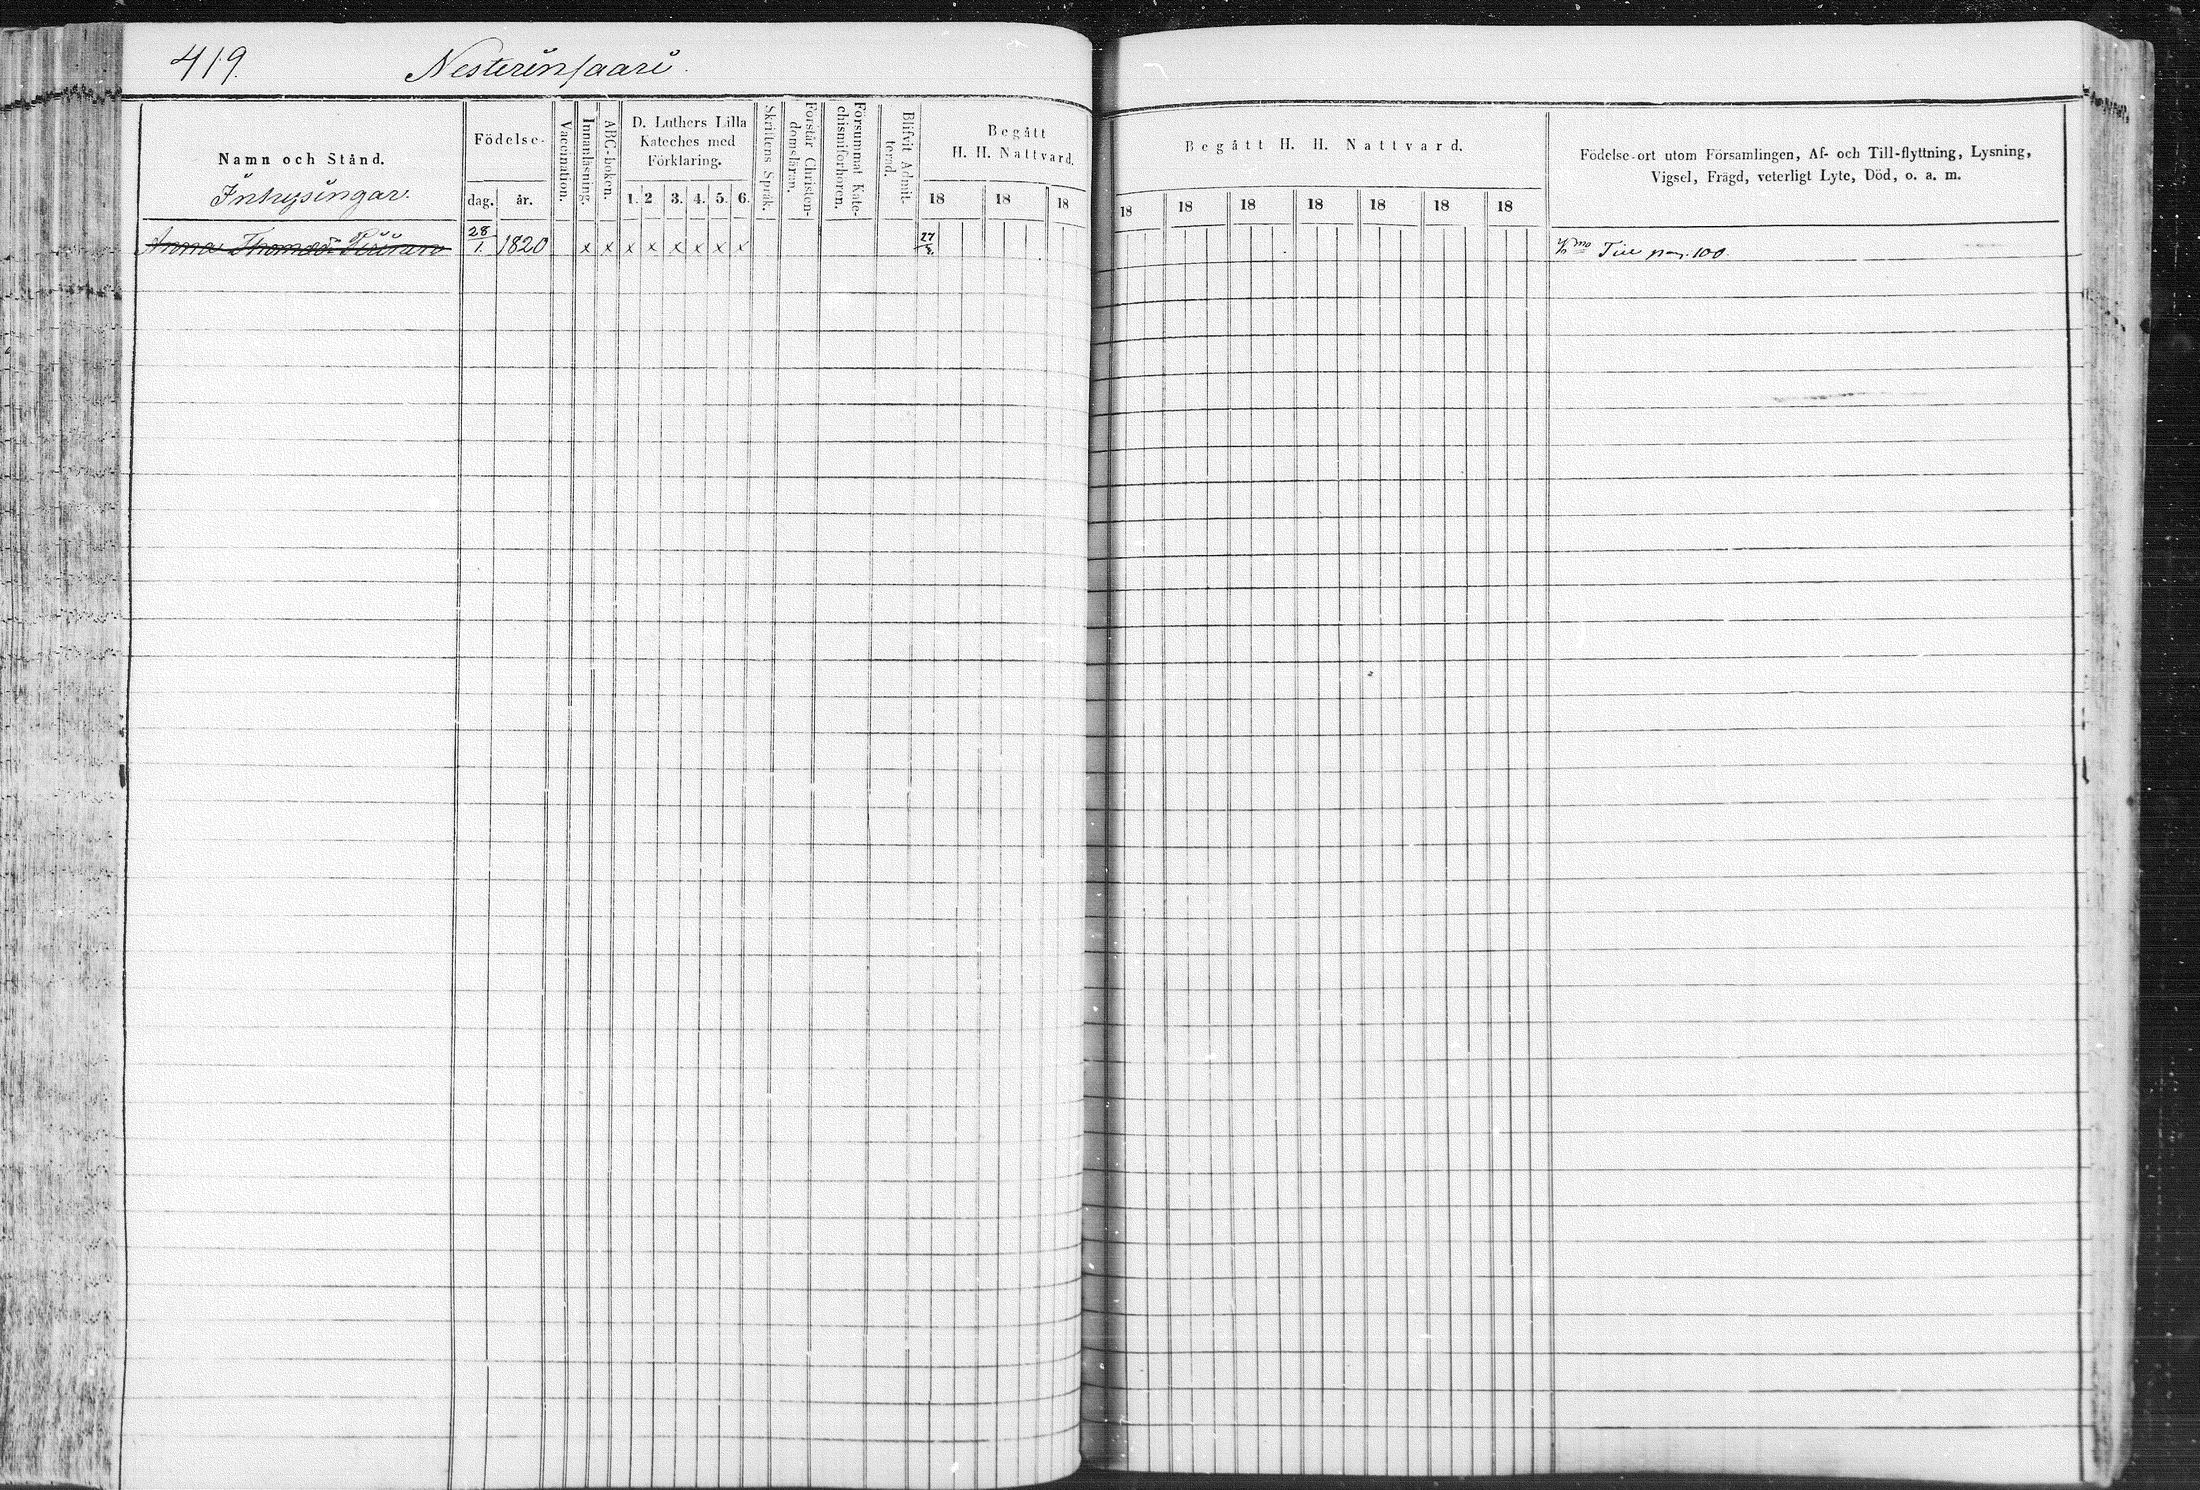 419.
Nesterinsaari.
Namn och Stånd.
Inhysingar.
Födelse-
dag.
år.
Vaccination.
Innanläsning.
ABC-boken.
D. Luthers Lilla
Kateches med
Förklaring.
1. 2 3. 4. 5. 6.
Skriftens Språk.
Förstår Christen-
domsläran.
Försummat Kate-
chismiförhören.
Blifvit Admit-
terad.
Begått
H. H. Nattvard.
18 18 18
Begått H. H. Nattvard.
18 18 18 18 18 18 18
Födelse-ort utom Församlingen, Af- och Till-flyttning, Lysning,
Vigsel, Frägd, veterligt Lyte, Död, o. a. m.
Anna 28/1. 1820 x x x x x x x x 27 Till pag. 100.